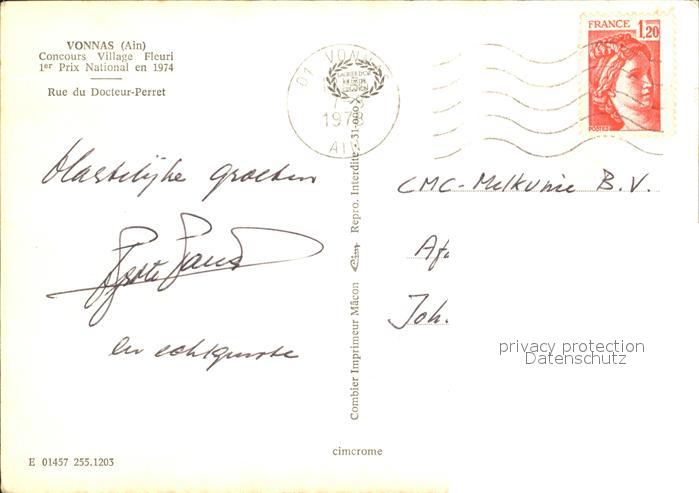 VONNAS (Ain)
Concours Village Fleuri
1er Prix National en 1974
Rue du Docteur-Perret
01 VONNAS
1978
AIN
FRANCE
1,20
POSTES
Hartelijke groeten
en echtgenote
CMC-Melkunie B.V.
Afd
Joh.
privacy protection
Datenschutz
Combier Imprimeur Mâcon Cim Repro. Interdite - 31-000
cimcrome
E 01457 255.1203